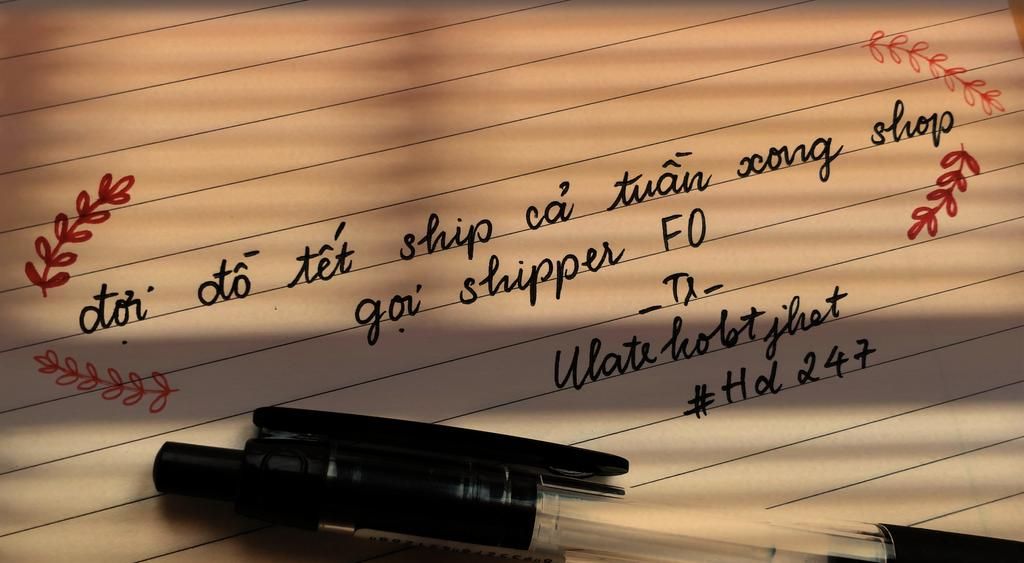 đợi đồ tết ship cả tuần xong shop
gọi shipper F0
_Tx_
Ulatekobtjhet
#Hd 247